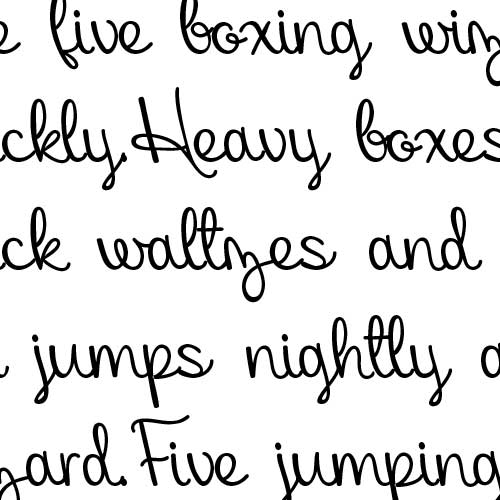 five boxing
ckly. Heavy boxes
ck waltzes and
jumps nightly
ard. Five jumping